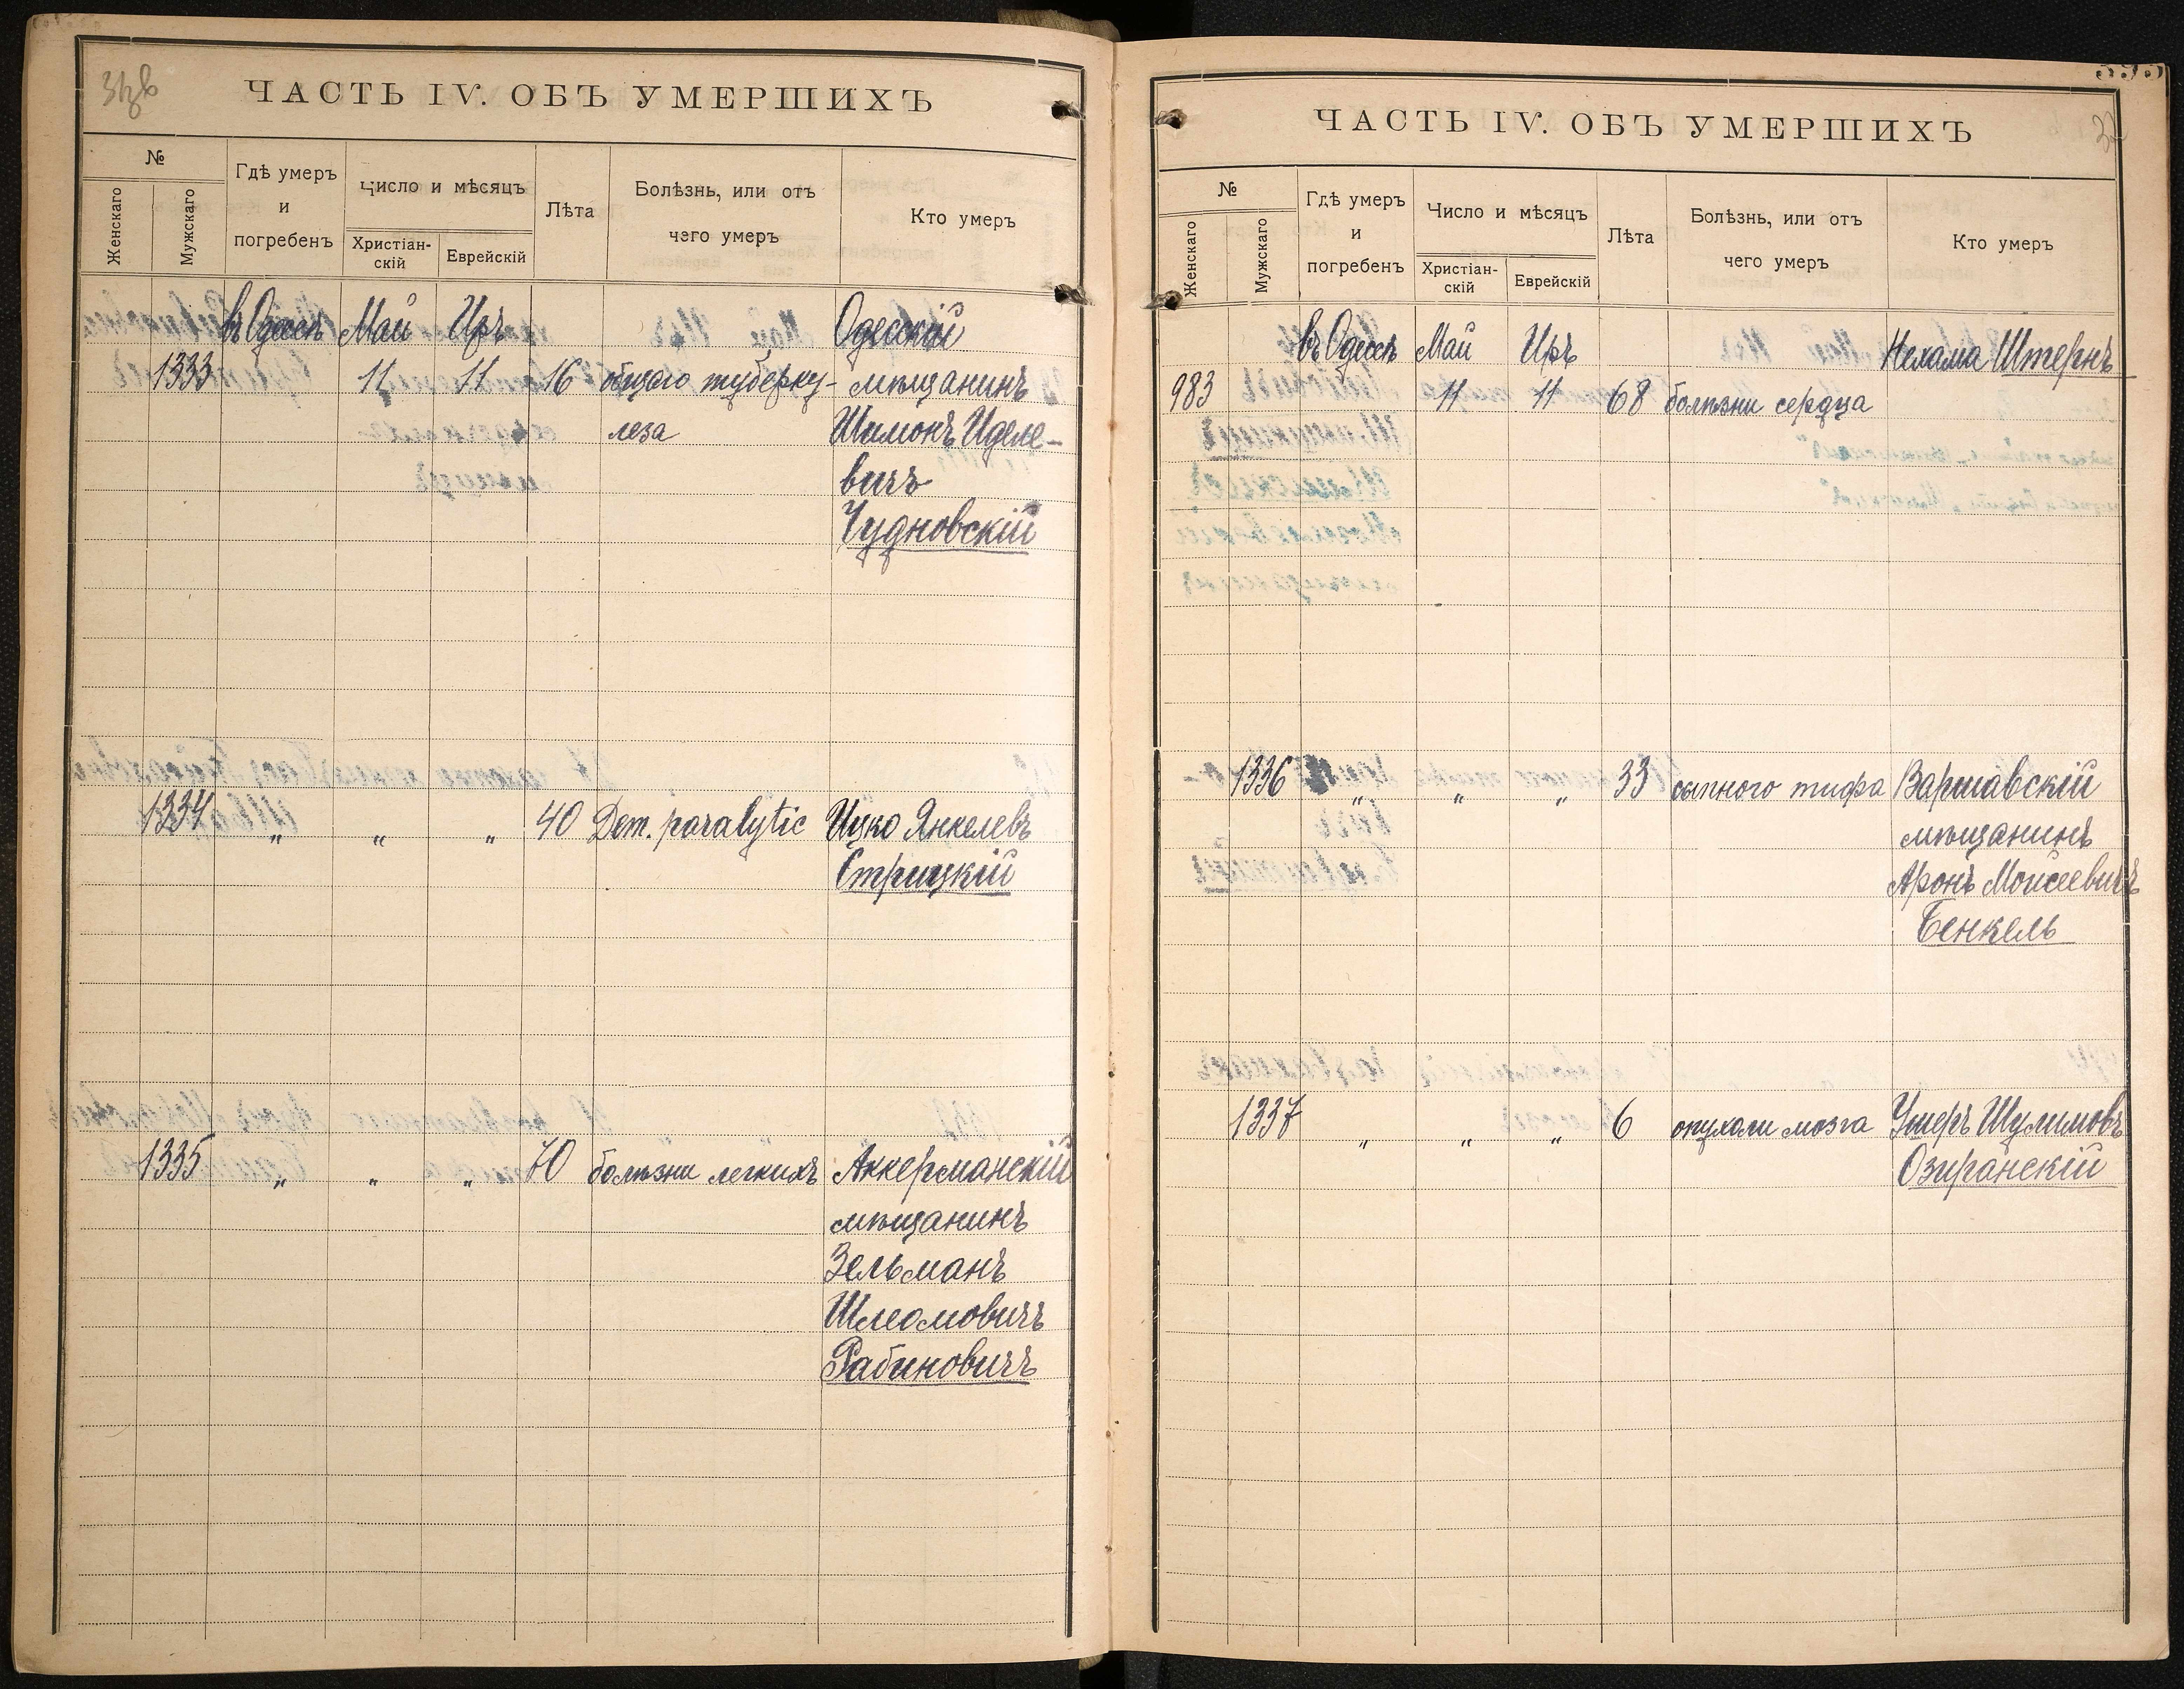 ЧАСТЬ IV. ОБЪ УМЕРШИХЪ
№
Женскаго
Мужскаго
Гдѣ умеръ
и
погребенъ
Число и мѣсяцъ
Христіан-
скій
Еврейскій
Лѣта
Болѣзнь, или отъ
чего умеръ
Кто умеръ
въ Одессѣ Май Іиръ Одесскій
1333 11 11 16 общаго туберку- мѣщанинъ
леза Шимонъ Иделе-
вичъ
Чудновскій
1334 " " " 40 Dem. paralytic Ицко Янкелевъ
Стрицкій
1335 " " " 70 болѣзни легкихъ Аккерманскій
мѣщанинъ
Зельманъ
Шлеомовичъ
Рабиновичъ
ЧАСТЬ IV. ОБЪ УМЕРШИХЪ
№
Женскаго
Мужскаго
Гдѣ умеръ
и
погребенъ
Число и мѣсяцъ
Христіан-
скій
Еврейскій
Лѣта
Болѣзнь, или отъ
чего умеръ
Кто умеръ
въ Одессѣ Май Іиръ Нехама Штернъ
983 11 11 68 болѣзни сердца
1336 " " " 33 сыпного тифа Варшавскій
мѣщанинъ
Аронъ Моисеевичъ
Бенкель
1337 " " " 6 опухоли мозга Ушеръ Шулимовъ
Озиранскій